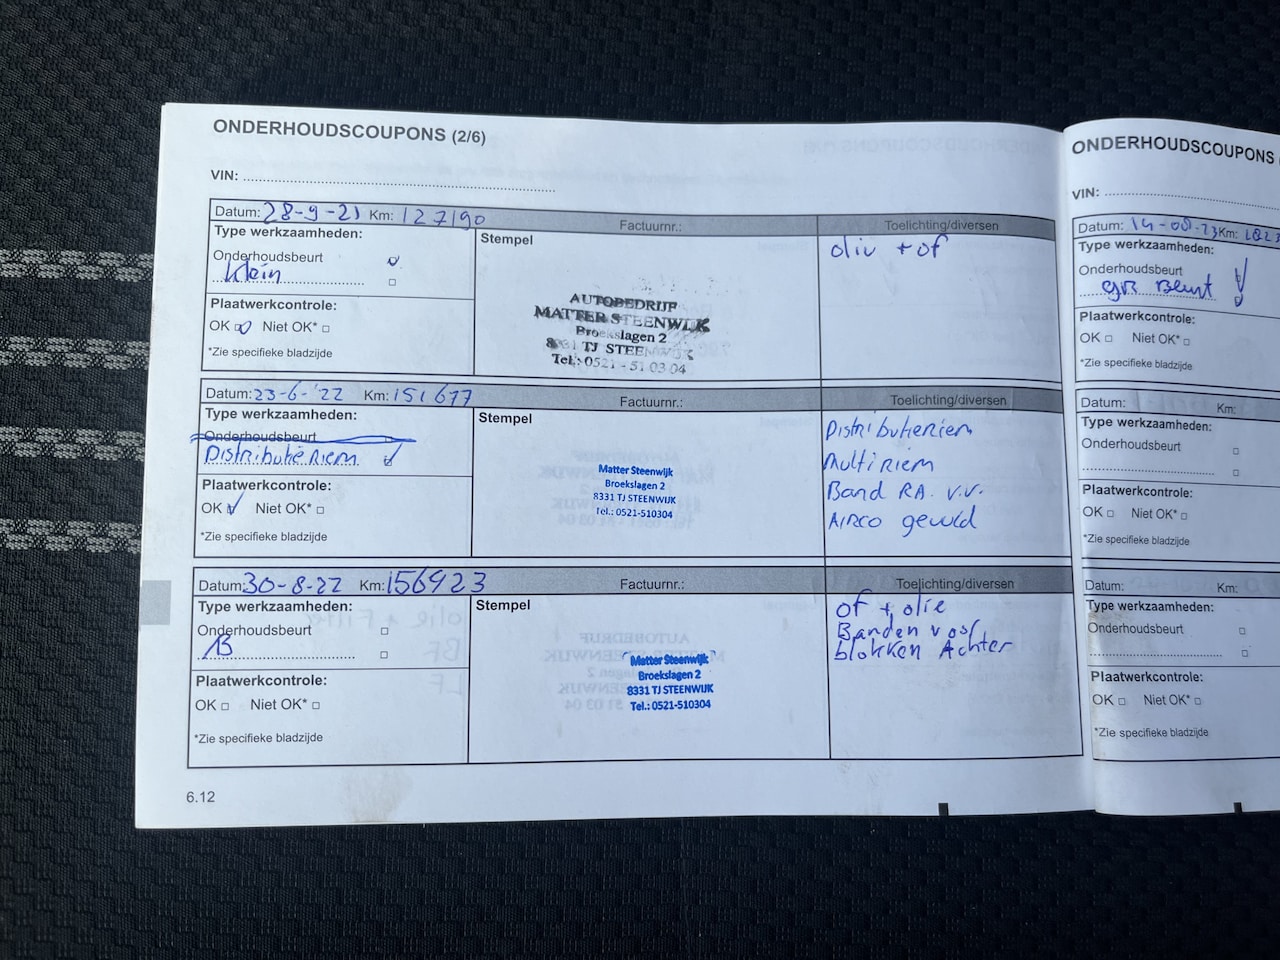 ONDERHOUDSCOUPONS (2/6)
VIN:
Datum: 28-9-21 Km: 127190 Factuurnr.: Toelichting/diversen
Type werkzaamheden:
Stempel
oliv + of
Onderhoudsbeurt
Klein
AUTOBEDRIJF
MATTER STEENWIJK
Broekslagen 2
8331 TJ STEENWIJK
Tel.: 0521 - 51 03 04
Plaatwerkcontrole:
OK Niet OK*
*Zie specifieke bladzijde
Datum: 23-6-'22 Km: 151677 Factuurnr.: Toelichting/diversen
Type werkzaamheden:
Stempel
Onderhoudsbeurt
Distributieriem
Distributieriem
Multiriem
Band RA. v.v.
Airco gevuld
Matter Steenwijk
Broekslagen 2
8331 TJ STEENWIJK
Tel.: 0521-510304
Plaatwerkcontrole:
OK Niet OK*
*Zie specifieke bladzijde
Datum: 30-8-22 Km: 156923 Factuurnr.: Toelichting/diversen
Type werkzaamheden:
Stempel
Onderhoudsbeurt
B
of + olie
Banden voor
blokken Achter
Matter Steenwijk
Broekslagen 2
8331 TJ STEENWIJK
Tel.: 0521-510304
Plaatwerkcontrole:
OK Niet OK*
*Zie specifieke bladzijde
6.12
ONDERHOUDSCOUPONS
VIN:
Datum: 14-08-23 Km:
Type werkzaamheden:
Onderhoudsbeurt
gr Beurt
Plaatwerkcontrole:
OK Niet OK*
*Zie specifieke bladzijde
Datum: Km:
Type werkzaamheden:
Onderhoudsbeurt
Plaatwerkcontrole:
OK Niet OK*
*Zie specifieke bladzijde
Datum: Km:
Type werkzaamheden:
Onderhoudsbeurt
Plaatwerkcontrole:
OK Niet OK*
*Zie specifieke bladzijde